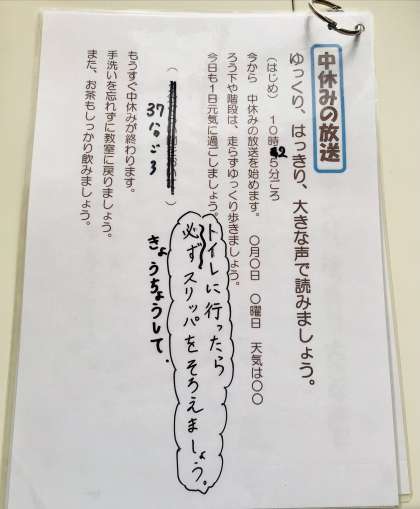 中休みの放送
ゆっくり、はっきり、大きな声で読みましょう。
(はじめ) 10時25分ごろ
今から 中休みの放送を始めます。 〇月〇日 〇曜日 天気は〇〇
ろう下や階段は、走らずゆっくり歩きましょう。
今日も1日元気に過ごしましょう。
トイレに行ったら
必ずスリッパをそろえましょう。
きょうちょうして。
( )
37分ごろ
もうすぐ中休みが終わります。
手洗いを忘れずに教室に戻りましょう。
また、お茶もしっかり飲みましょう。